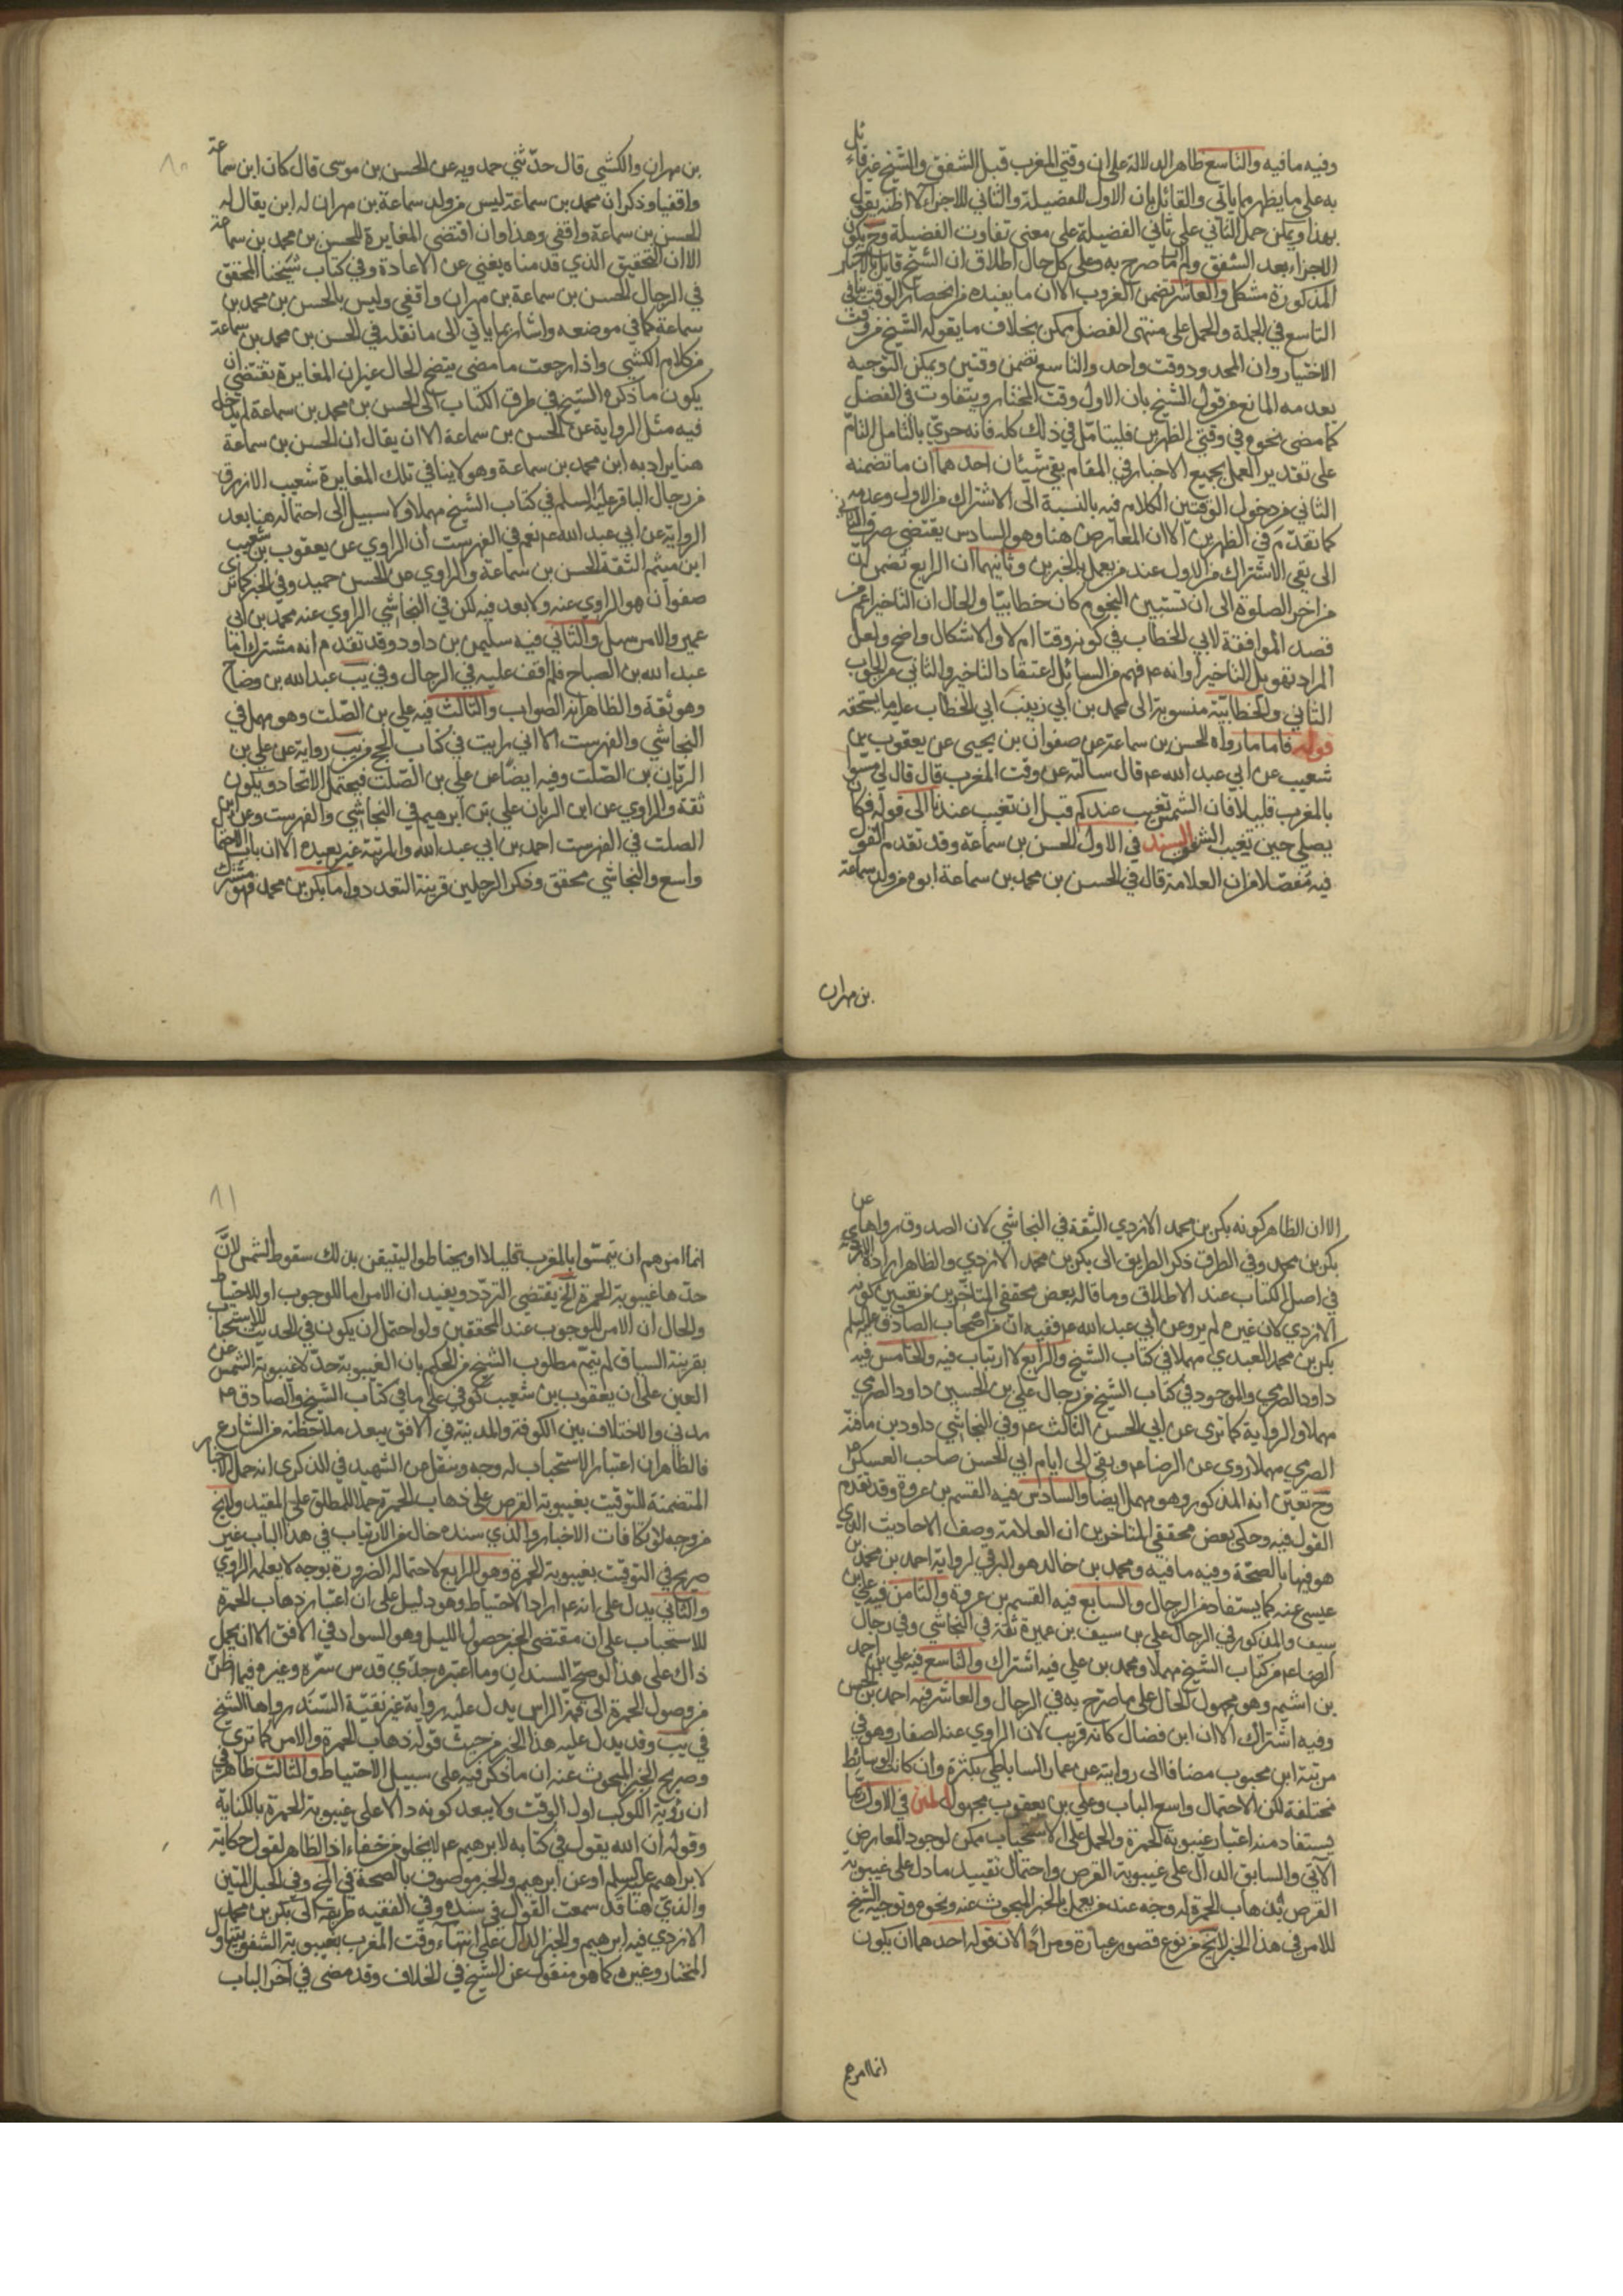 وفيه ما فيه والتاسع ظاهر الدلالة على ان وقتي المغرب قبل الشفق والشيخ غير قائل
به على ما يظهر مما ياتي والقائل بان الاول للفضيلة والثاني للاجزاء لا اظنه يقول
بهذا ويمكن حمل الثاني على ثاني الفضيلة على معنى تفاوت الفضيلة وح يكون
الاجزاء بعد الشفق ولم صرح به وعلى كل حال اطلاق ان الشيخ قايل بالاخبار
المذكورة مشكل والعاشر تضمن الغروب الا ان ما يفيده من انحصار الوقت ينافي
التاسع في الجملة والحمل على منتهى الفضل ممكن بخلاف ما يقوله الشيخ من وقت
الاختيار وان المحدود وقت واحد والتاسع تضمن وقتين ويمكن التوجيه
بعدمه المانع من قول الشيخ بان الاول وقت المختار ويتفاوت في الفضل
كما مضى نحوه في وقتي الظهرين فليتامل في ذلك كله فانه حري بالتامل التام
على تقدير العمل بجميع الاخبار في المقام بقي شيئان احدهما ان ما تضمنه
الثاني من دخول الوقتين الكلام فيه بالنسبة الى الاشتراك من الاول وعدمه
كما تقدم في الظهرين الا ان المعارض هنا وهو السادس يقتضي صرف الثاني
الى بقي الاشتراك من الاول عند من يعمل بالخبرين وثانيهما ان الرابع تضمن ان
من اخر الصلوة الى ان تستبين النجوم كان خطابيا والحال ان التاخير اعم من
قصد الموافقة لابي الخطاب في كونه وقتا ام لا والاشكال واضح ولعل
المراد تقوبل التاخير او انه ع فهم من السائل اعتقاد التاخير والثاني من الجواب
الثاني والخطابية منسوبة الى محمد بن ابي زينب ابي الخطاب عليه ما يستحقه
قوله فاما ما رواه الحسن بن سماعة عن صفوان بن يحيى عن يعقوب بن
شعيب عن ابي عبد الله ع قال سالته عن وقت المغرب قال قال لي مسوا
بالمغرب قليلا فان الشمس تغيب عندكم قبل ان تغيب عندنا الى قوله فكان
يصلي حين تغيب الشفق السند في الاول الحسن بن سماعة وقد تقدم القول
فيه مفصلا من ان العلامة قال في الحسن بن محمد بن سماعة ابوه من ولد سماعة
بن مهران
٨٠
بن مهران والكشي قال حدثني حمدويه عن الحسن بن موسى قال كان ابن سماعة
واقفيا وذكر ان محمد بن سماعة ليس من ولد سماعة بن مهران له ابن يقال له
الحسن بن سماعة واقفي وهذا وان اقتضى المغايرة للحسن بن محمد بن سماعة
الا ان التحقيق الذي قدمناه يغني عن الاعادة وفي كتاب شيخنا المحقق
في الرجال الحسن بن سماعة بن مهران واقفي وليس بالحسن بن محمد بن
سماعة كما في موضعه واشار بما ياتي الى ما نقله في الحسن بن محمد بن سماعة
من كلام الكشي واذا رجعت ما مضى يتضح الحال غير ان المغايرة تقتضي ان
يكون ما ذكره الشيخ في طرق الكتاب الى الحسن بن محمد بن سماعة لا يدخل
فيه مثل الرواية عن الحسن بن سماعة الا ان يقال ان الحسن بن سماعة
هنا يراد به ابن محمد بن سماعة وهو لا ينافي تلك المغايرة شعيب الازرق
من رجال الباقر عليه السلم في كتاب الشيخ مهملا ولا سبيل الى احتماله هنا بعد
الرواية عن ابي عبد الله ع نعم في الفهرست ان الراوي عن يعقوب بن شعيب
ابن ميثم الثقة الحسن بن سماعة والراوي عن الحسن حميد وفي الخبر كما ترى
صفوان هو الراوي عنه ولا بعد فيه لكن في النجاشي الراوي عنه محمد بن ابي
عمير والامر سهل والثاني فيه سليمن بن داود وقد تقدم انه مشترك اما
عبد الله بن الصباح فلم اقف عليه في الرجال وفي يب عبد الله بن وضاح
وهو ثقة والظاهر انه الصواب والثالث فيه علي بن الصلت وهو مهمل في
النجاشي والفهرست الا اني رايت في كتاب الحج من يب رواية عن علي بن
الريان بن الصلت وفيه ايضا عن علي بن الصلت فيحتمل الاتحاد ويكون
ثقة والراوي عن ابن الريان علي بن ابرهيم في النجاشي والفهرست وعن ابن
الصلت في الفهرست احمد بن ابي عبد الله والمرتبة غير بعيدة الا ان باب الاحتمال
واسع والنجاشي محقق وذكر الرجلين قرينة التعدد واما بكر بن محمد فهو مشترك
الا ان الظاهر كونه بكر بن محمد الازدي الثقة في النجاشي لان الصدوق رواها عن
بكر بن محمد وفي الطرق ذكر الطريق الى بكر بن محمد الازدي والظاهر ارادة الازدي
في اصل الكتاب عند الاطلاق وما قاله بعض محققي المتاخرين من تعيين كونه
الازدي لان غيره لم يرو عن ابي عبد الله ع ففيه ان من اصحاب الصادق عليه السلم
بكر بن محمد العبدي مهملا في كتاب الشيخ والرابع لا ارتياب فيه والخامس فيه
داود الصرمي والموجود في كتاب الشيخ من رجال علي بن الحسين داود الصرمي
مهملا والرواية كما ترى عن ابي الحسن الثالث ع وفي النجاشي داود بن مافنه
الصرمي مهملا روى عن الرضا ع وبقي الى ايام ابي الحسن صاحب العسكر ع
وح تعين انه المذكور وهو مهمل ايضا والسادس فيه القسم بن عروة وقد تقدم
القول فيه وحكى بعض محققي المتاخرين ان العلامة وصف الاحاديث الذي
هو فيها بالصحة وفيه ما فيه ومحمد بن خالد هو البرقي لرواية احمد بن محمد بن
عيسى عنه كما يستفاد من الرجال والسابع فيه القسم بن عروة والثامن فيه علي بن
سيف والمذكور في الرجال علي بن سيف بن عميرة ثقة في النجاشي وفي رجال
الرضا ع من كتاب الشيخ مهملا ومحمد بن علي فيه اشتراك والتاسع فيه علي بن احمد
بن اشيم وهو مجهول الحال على ما صرح به في الرجال والعاشر فيه احمد بن الحسن
وفيه اشتراك الا ان ابن فضال كانه قريب لان الراوي عنه الصفار وهو في
مرتبة ابن محبوب مضافا الى روايته عن عمار الساباطي بكثرة وان كانت الوسائط
مختلفة لكن الاحتمال واسع الباب وعلي بن يعقوب مجهول المتن في الاول ربما
يستفاد منه اعتبار غيبوبة الحمرة والحمل على الاستحباب ممكن لوجود المعارض
الآتي والسابق الدال على غيبوبة القرص واحتمال تقييد ما دل على غيبوبة
القرص بذهاب الحمرة له وجه عند من يعمل بالخبر المبحوث عنه ونحوه وتوجيه الشيخ
للامر في هذا الخبر لا يخ من نوع قصور عبارة ومراد الان قوله احدهما ان يكون
انما امرهم
٨١
انما امرهم ان يمسوا بالمغرب قليلا او يحتاطوا ليتيقن بذلك سقوط الشمس لان
حدها غيبوبة الحمرة الخ يقتضي التردد ويفيد ان الامر اما للوجوب او للاحتياط
والحال ان الامر للوجوب عند المحققين ولو احتمل ان يكون في الحديث للاستحباب
بقرينة السياق لم يتم مطلوب الشيخ من الحكم بان الغيبوبة حد لا غيبوبة الشمس عن
العين على ان يعقوب بن شعيب كوفي على ما في كتاب الشيخ والصادق ع
مدني والاختلاف بين الكوفة والمدينة في الافق يبعد ملاحظته من الشارع
فالظاهر ان اعتبار الاستحباب له وجه وينقل عن الشهيد في الذكرى انه حمل الاخبار
المتضمنة للتوقيت بغيبوبة القرص على ذهاب الحمرة حملا للمطلق على المقيد ولا يخ
من وجه لو تكافات الاخبار والذي سنده خال من الارتياب في هذا الباب غير
صريح في التوقيت بغيبوبة الحمرة وهو الرابع لاحتمال الضرورة بوجه لا يعلمه الراوي
والثاني يدل على انه ع اراد الاحتياط وهو دليل على ان اعتبار ذهاب الحمرة
للاستحباب على ان مقتضى الخبر حصول الليل وهو السواد في الافق الا ان يحمل
ذاك على هذا لو صح السندان وما اعتبره جدي قدس سره وغيره فيما اظن
من وصول الحمرة الى قمة الراس يدل عليه رواية غير نقية السند رواها الشيخ
في يب وقد يدل عليه هذا الخبر من حيث قوله ذهاب الحمرة والامر كما ترى
وصريح الخبر المبحوث عنه ان ما ذكر فيه على سبيل الاحتياط والثالث ظاهر في
ان رؤية الكوكب اول الوقت ولا يبعد كونه دالا على غيبوبة الحمرة بالكناية
وقوله ان الله يقول في كتابه لابرهيم ع لا يخلو من خفاء اذ الظاهر لقول حكاية
لابراهيم عليه السلم او عن ابرهيم والخبر موصوف بالصحة في المخ وفي الحبل المتين
والذي هنا قد سمعت القول في سنده وفي الفقيه طريقه الى بكر بن محمد
الازدي فيه ابرهيم والخبر الدال على انتهاء وقت المغرب بغيبوبة الشفق يتناول
المختار وغيره كما هو منقول عن الشيخ في الخلاف وقد مضى في آخر الباب